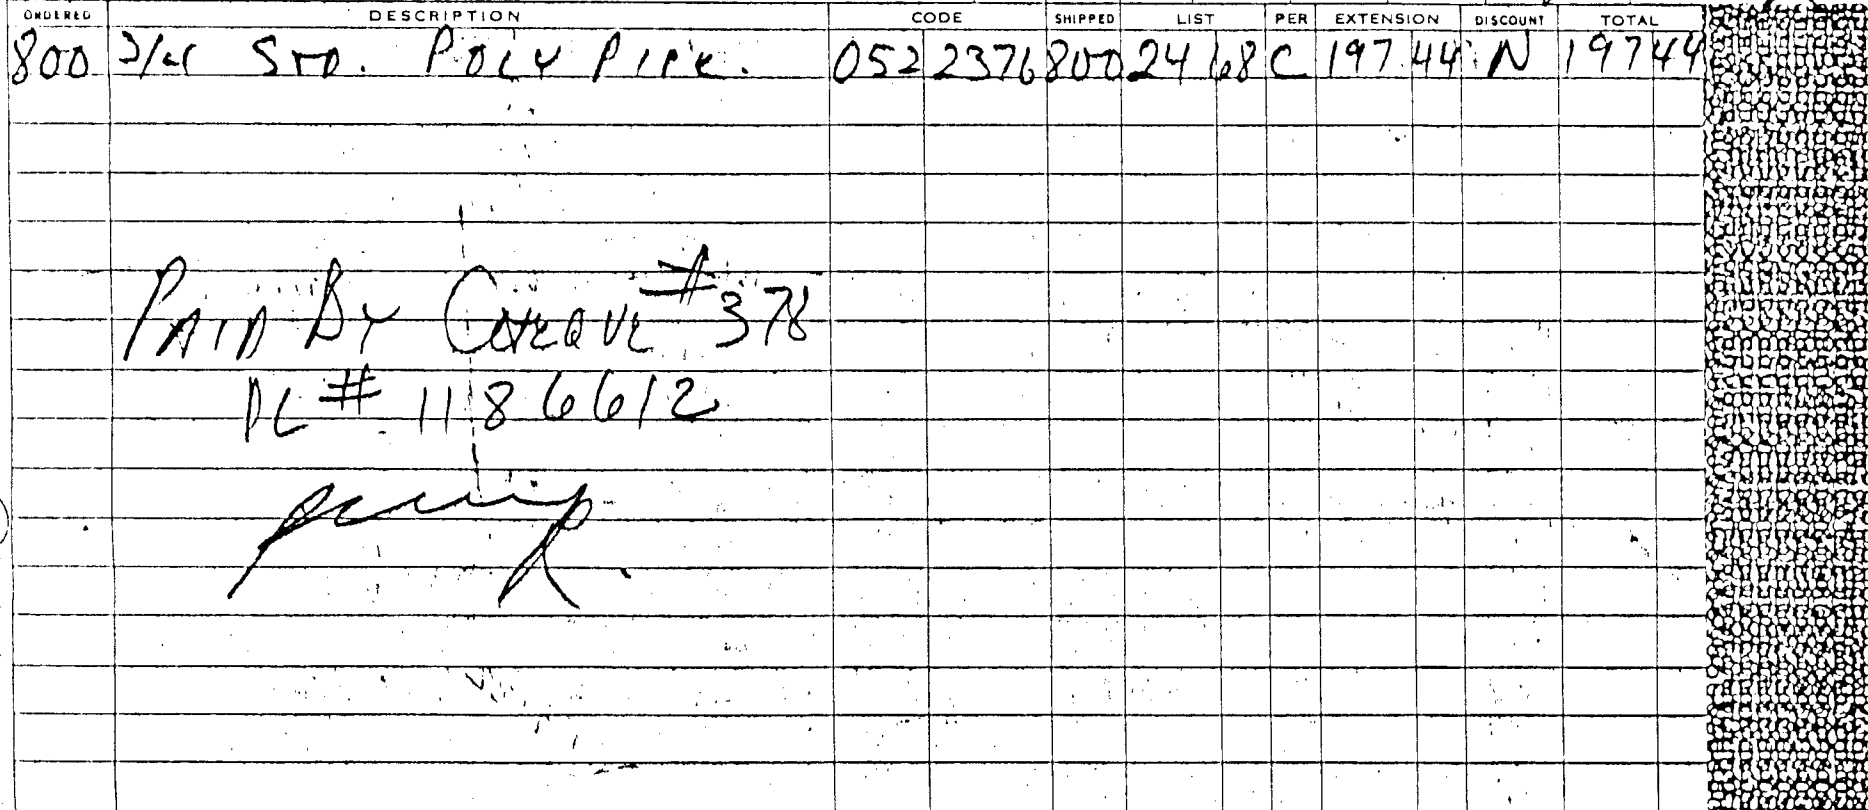 ORDERED DESCRIPTION CODE SHIPPED LIST PER EXTENSION DISCOUNT TOTAL
800 3/4 STD. POLY PIPE. 052 2376 800 24 68 C 197 44 N 197 44
PAID BY CHEQUE #378
DL # 1186612